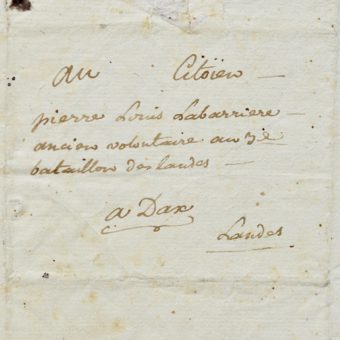 au Citoïen
pierre Louis Labarriere
ancien volontaire au 3e
bataillon des landes
a Dax
Landes